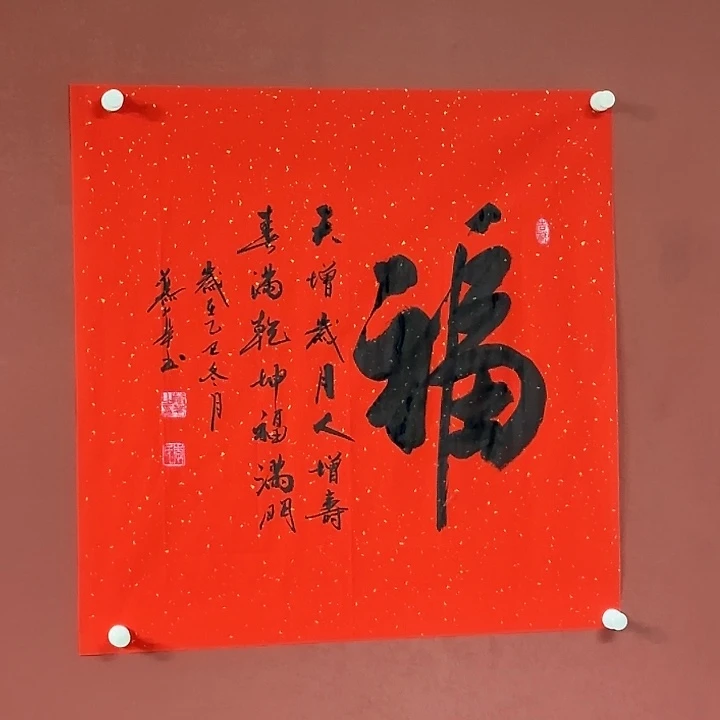 福
天增歲月人增壽
春滿乾坤福滿門
歲在乙丑冬月